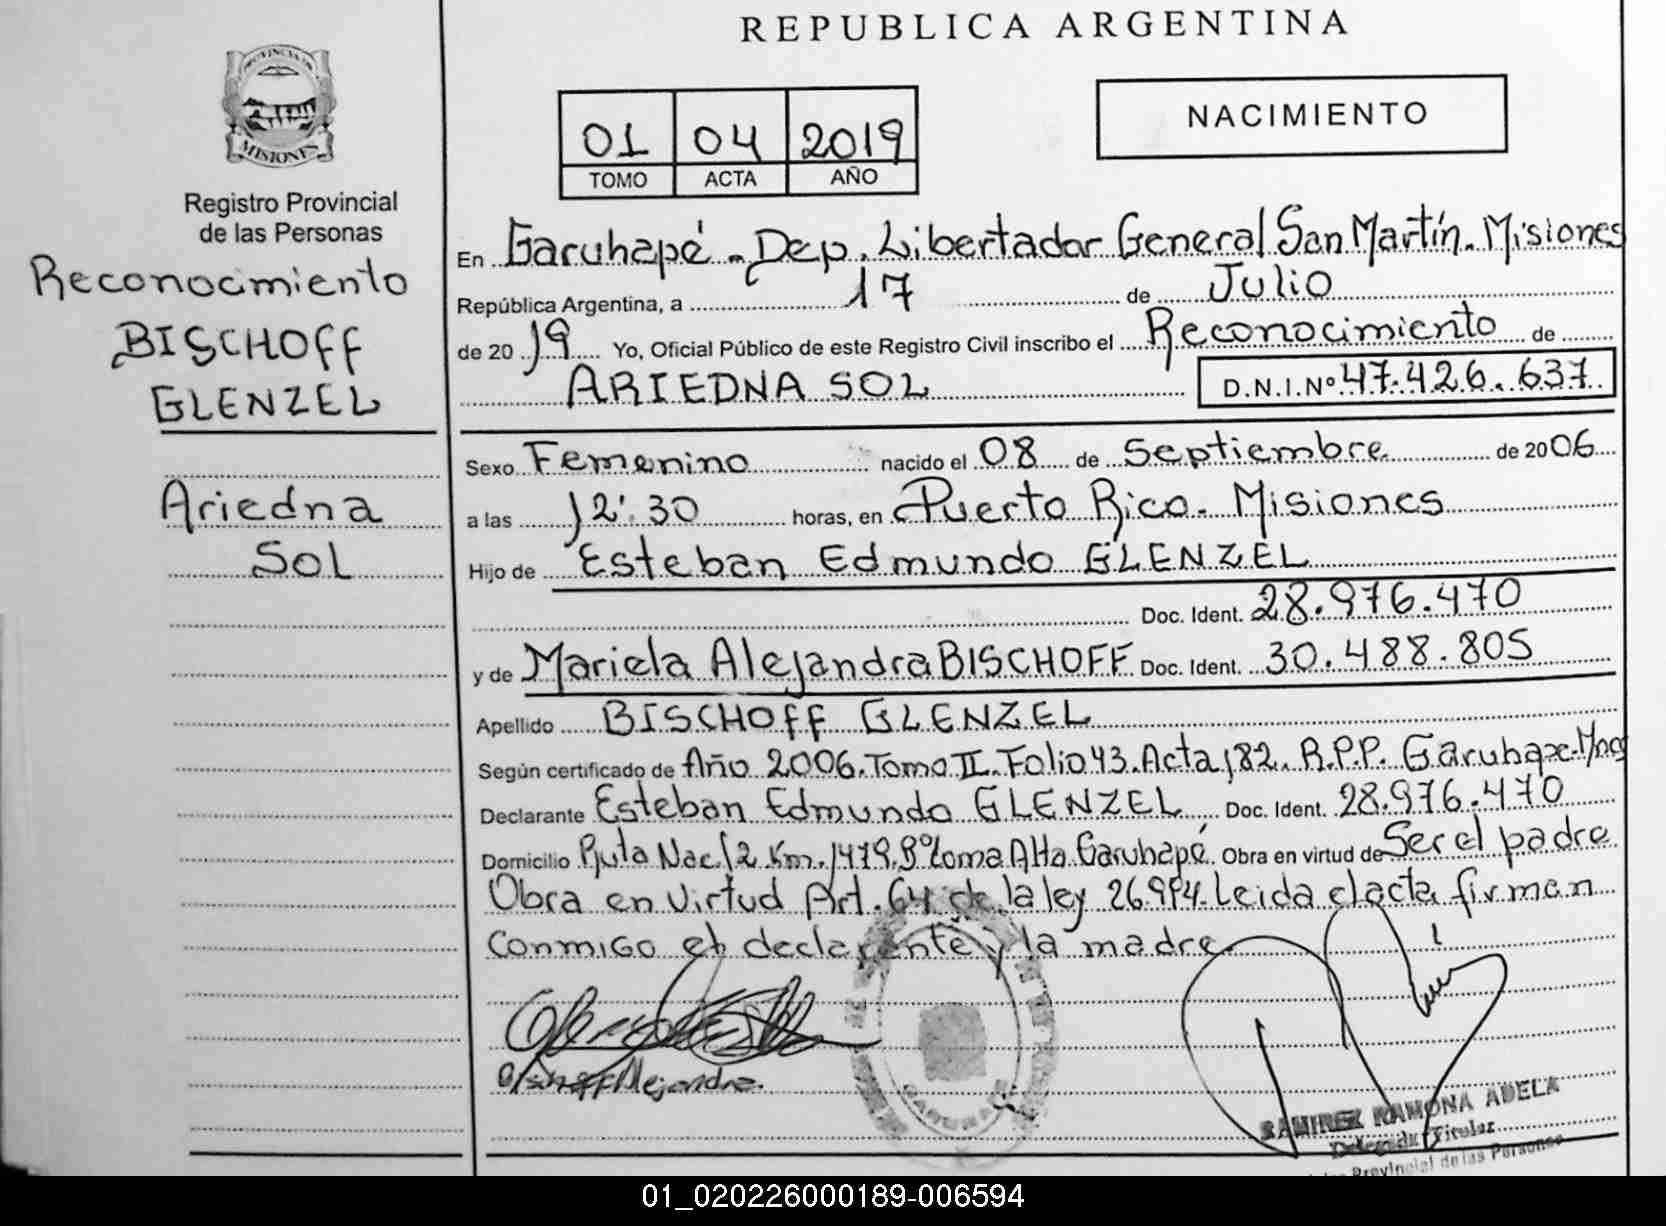 REPUBLICA ARGENTINA
PROVINCIA DE
MISIONES
Registro Provincial
de las Personas
Reconocimiento
BISCHOFF
GLENZEL
Ariedna
Sol
01 04 2019
TOMO ACTA AÑO
NACIMIENTO
En Garuhapé - Dep. Libertador General San Martín - Misiones
República Argentina, a 17 de Julio
de 2019 Yo, Oficial Público de este Registro Civil inscribo el Reconocimiento de
ARIEDNA SOL D.N.I.Nº 47.426.637
Sexo Femenino nacido el 08 de Septiembre de 2006
a las 12:30 horas, en Puerto Rico - Misiones
Hijo de Esteban Edmundo GLENZEL
Doc. Ident. 28.976.470
y de Mariela Alejandra BISCHOFF Doc. Ident. 30.488.805
Apellido BISCHOFF GLENZEL
Según certificado de Año 2006. Tomo II. Folio 43. Acta 182. R.P.P. Garuhape-Mnes
Declarante Esteban Edmundo GLENZEL Doc. Ident. 28.976.470
Domicilio Ruta Nac. 12 Km. 1479. Loma Alta Garuhapé. Obra en virtud de Ser el padre
Obra en virtud Art. 64 de la ley 26.994. Leida el acta firman
conmigo el declarante y la madre.
Alejandra.
RAMIREZ RAMONA ADELA
Delegada Titular
Provincial de las Personas
01_020226000189-006594